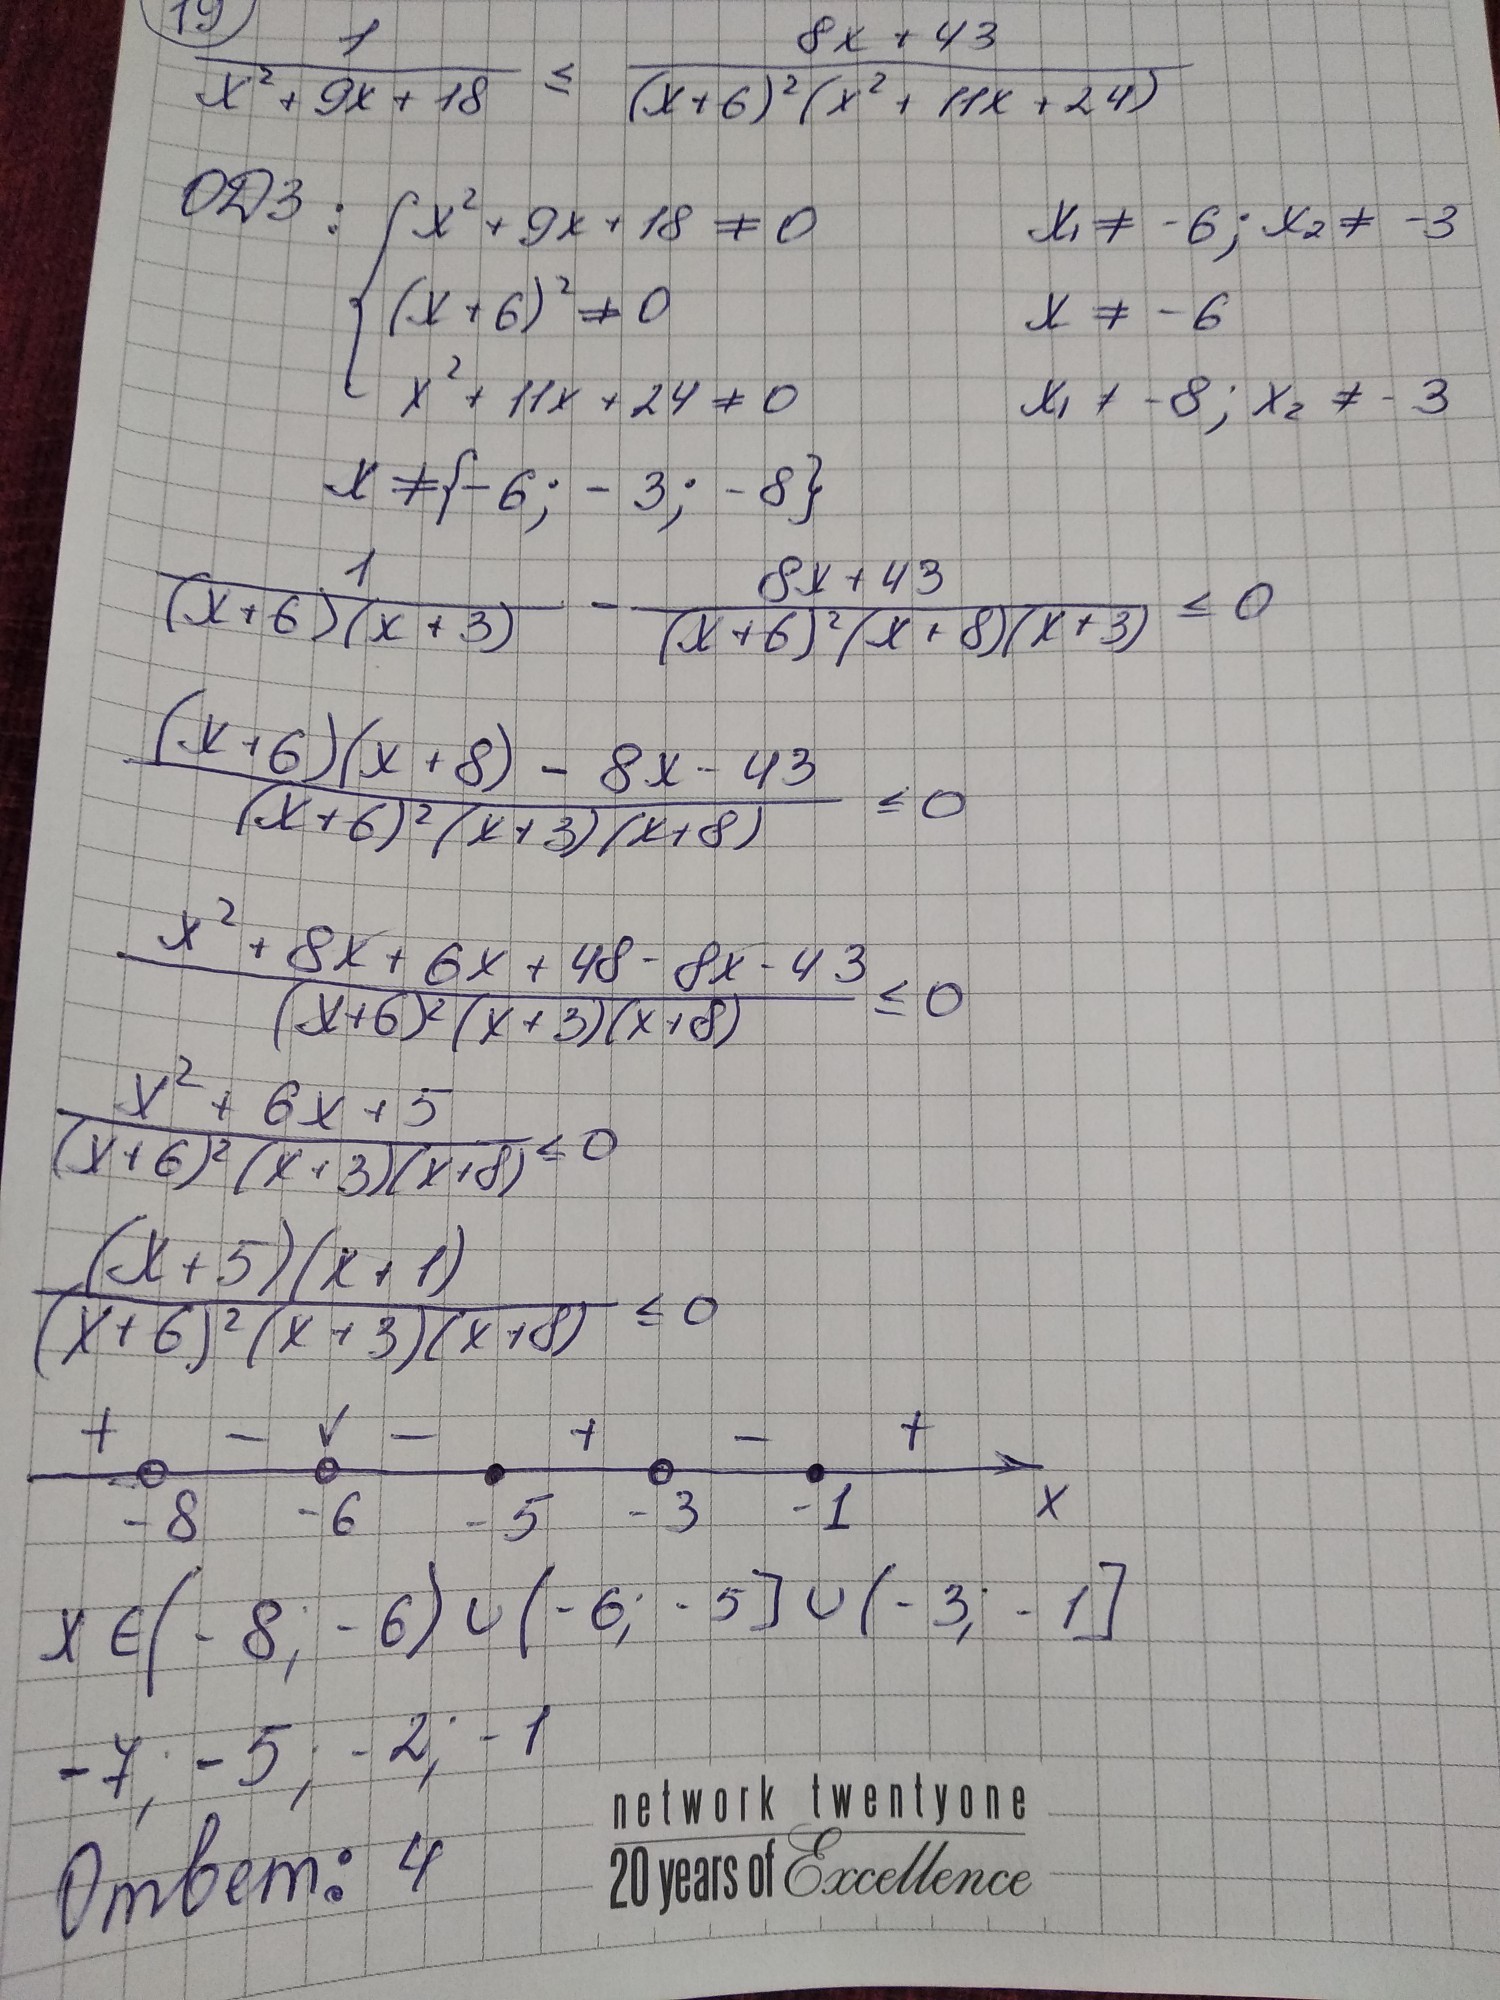 19
1/(x² + 9x + 18) ≤ (8x + 43)/((x+6)²(x² + 11x + 24))
ОДЗ: { x² + 9x + 18 ≠ 0 x₁ ≠ -6; x₂ ≠ -3
(x+6)² ≠ 0 x ≠ -6
x² + 11x + 24 ≠ 0 x₁ ≠ -8; x₂ ≠ -3
x ≠ {-6; -3; -8}
1/((x+6)(x+3)) - (8x+43)/((x+6)²(x+8)(x+3)) ≤ 0
((x+6)(x+8) - 8x - 43)/((x+6)²(x+3)(x+8)) ≤ 0
(x² + 8x + 6x + 48 - 8x - 43)/((x+6)²(x+3)(x+8)) ≤ 0
(x² + 6x + 5)/((x+6)²(x+3)(x+8)) ≤ 0
((x+5)(x+1))/((x+6)²(x+3)(x+8)) ≤ 0
+ - √ - + - +
-8 -6 -5 -3 -1 x
x ∈ (-8; -6) ∪ (-6; -5] ∪ (-3; -1]
-7; -5; -2; -1
Ответ: 4
network twentyone
20 years of Excellence